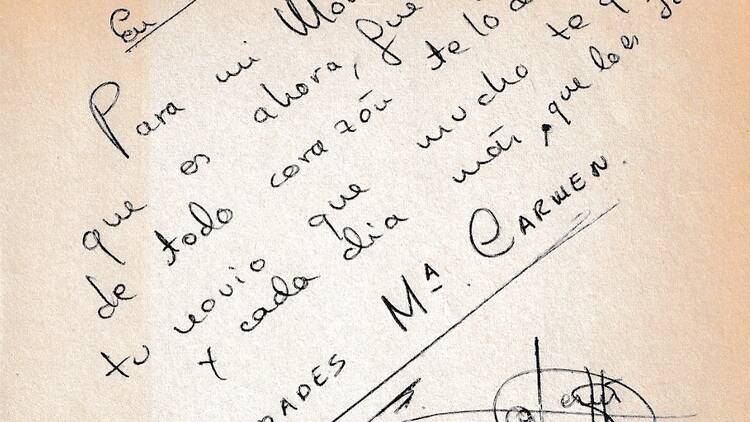 En
Para mi
que es ahora, fue
de todo corazón te lo
tu novio que mucho te
y cada día más, que lees
DADES Mª CARMEN.